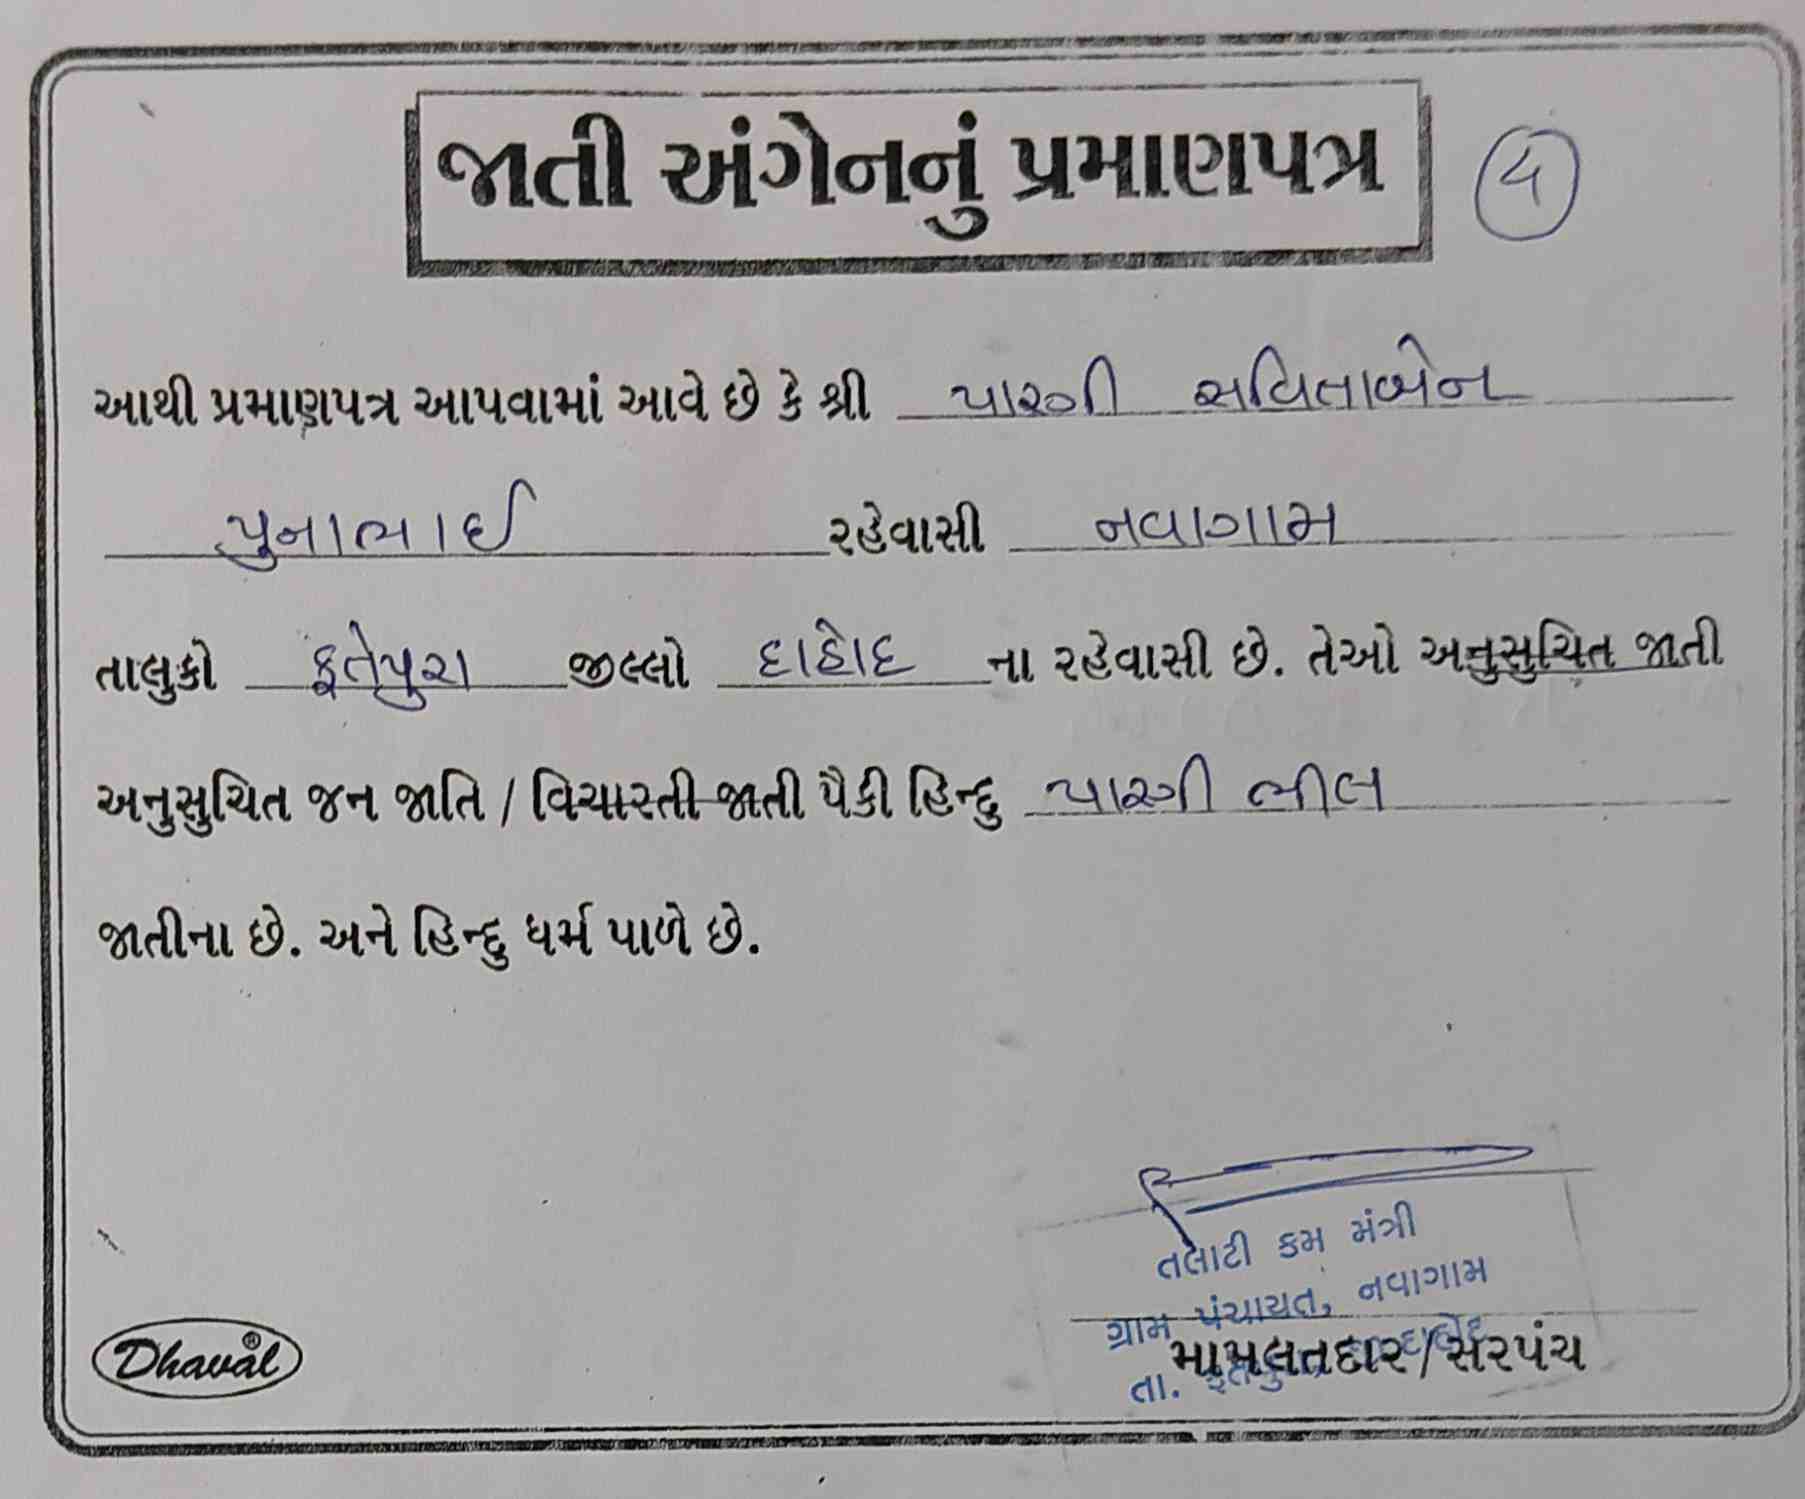 જાતી અંગેનનું પ્રમાણપત્ર
૫
આથી પ્રમાણપત્ર આપવામાં આવે છે કે શ્રી પારગી સવિતાબેન
પુનાભાઈ રહેવાસી નવાગામ
તાલુકો ફતેપુરા જીલ્લો દાહોદ ના રહેવાસી છે. તેઓ અનુસુચિત જાતી
અનુસુચિત જન જાતિ / વિચારતી જાતી પૈકી હિન્દુ પારગી ભીલ
જાતીના છે. અને હિન્દુ ધર્મ પાળે છે.
તલાટી કમ મંત્રી
ગ્રામ પંચાયત, નવાગામ
તા. ફતેપુરા દાહોદ
મામલતદાર / સરપંચ
Dhaval®